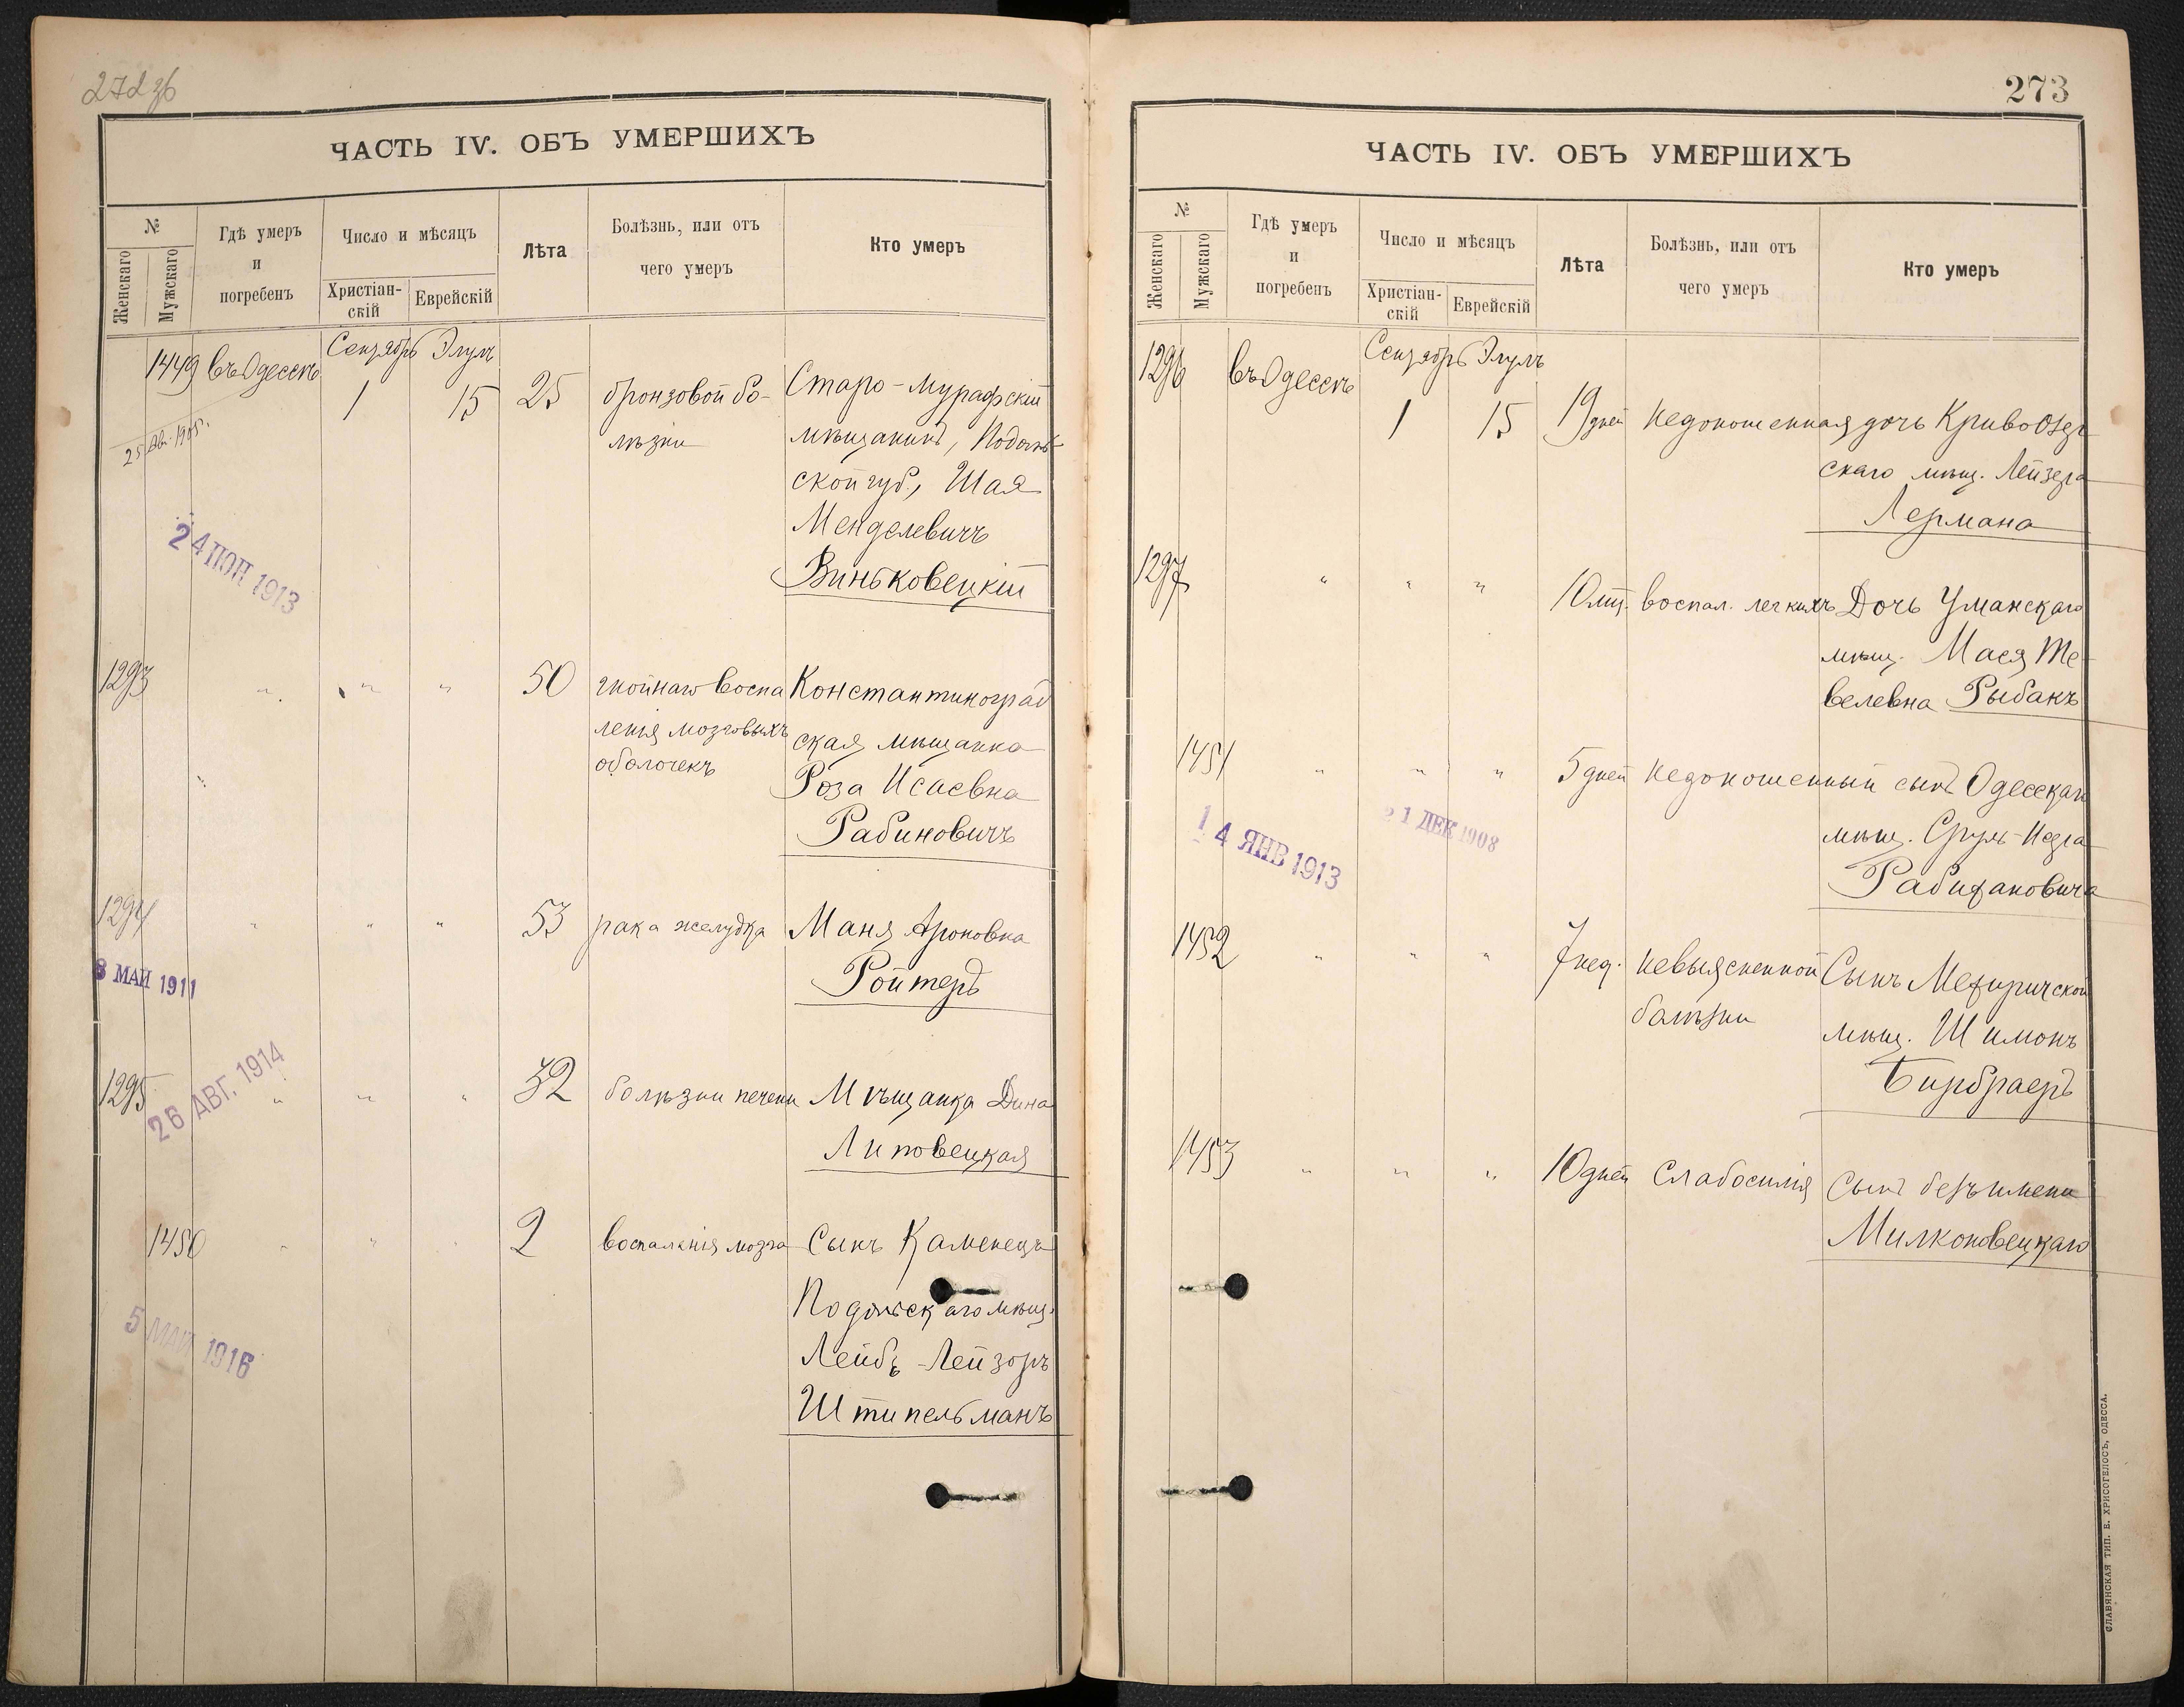 272 зб
ЧАСТЬ IV. ОБЪ УМЕРШИХЪ
№
Женскаго
Мужскаго
Гдѣ умеръ
и
погребенъ
Число и мѣсяцъ
Христіан-
скій
Еврейскій
Лѣта
Болѣзнь, или отъ
чего умеръ
Кто умеръ
1449 въ Одессѣ Сентябрь Элулъ
1 15 25 бронзовой бо- Старо-Мурафскій
лѣзни мѣщанинъ, Подоль
25 Авг. 1905.
ской губ., Шая
Менделевичъ
24 ІЮН 1913
Виньковецкій
1293 " " " 50 гнойнаго воспа Константиноград
ленія мозговыхъ ская мѣщанка
оболочекъ Роза Исаевна
Рабиновичъ
1294 " " " 53 рака желудка Маня Ароновна
8 МАЙ 1911
Ройтеръ
1295 " " " 32 болѣзни печени Мѣщанка Дина
26 АВГ. 1914
Липовецкая
1450 " " " 2 воспаленія мозга Сынъ Каменецъ
Подольскаго мѣщ.
5 МАЙ 1916
Лейбъ-Лейзоръ
Штипельманъ
273
ЧАСТЬ IV. ОБЪ УМЕРШИХЪ
№
Женскаго
Мужскаго
Гдѣ умеръ
и
погребенъ
Число и мѣсяцъ
Христіан-
скій
Еврейскій
Лѣта
Болѣзнь, или отъ
чего умеръ
Кто умеръ
1296 въ Одессѣ Сентябрь Элулъ
1 15 19 дней недоношенная дочь Кривоозер
скаго мѣщ. Лейзера
Лермана
1297 " " " 10 мѣс. воспал. легкихъ Дочь Уманскаго
мѣщ. Мася Те-
велевна Рыбакъ
1451 " " " 5 дней недоношенный сынъ Одесскаго
14 ЯНВ 1913
21 ДЕК 1908
мѣщ. Сруль-
1452 " " " 7 нед. невыясненной Сынъ Межиричской
болѣзни мѣщ. Шимонъ
Бирбраеръ
1453 " " " 10 дней Слабосилія Сынъ безъ имени
Милконовецкаго
СЛАВЯНСКАЯ ТИП. Е. ХРИСОГЕЛОСЪ, ОДЕССА.